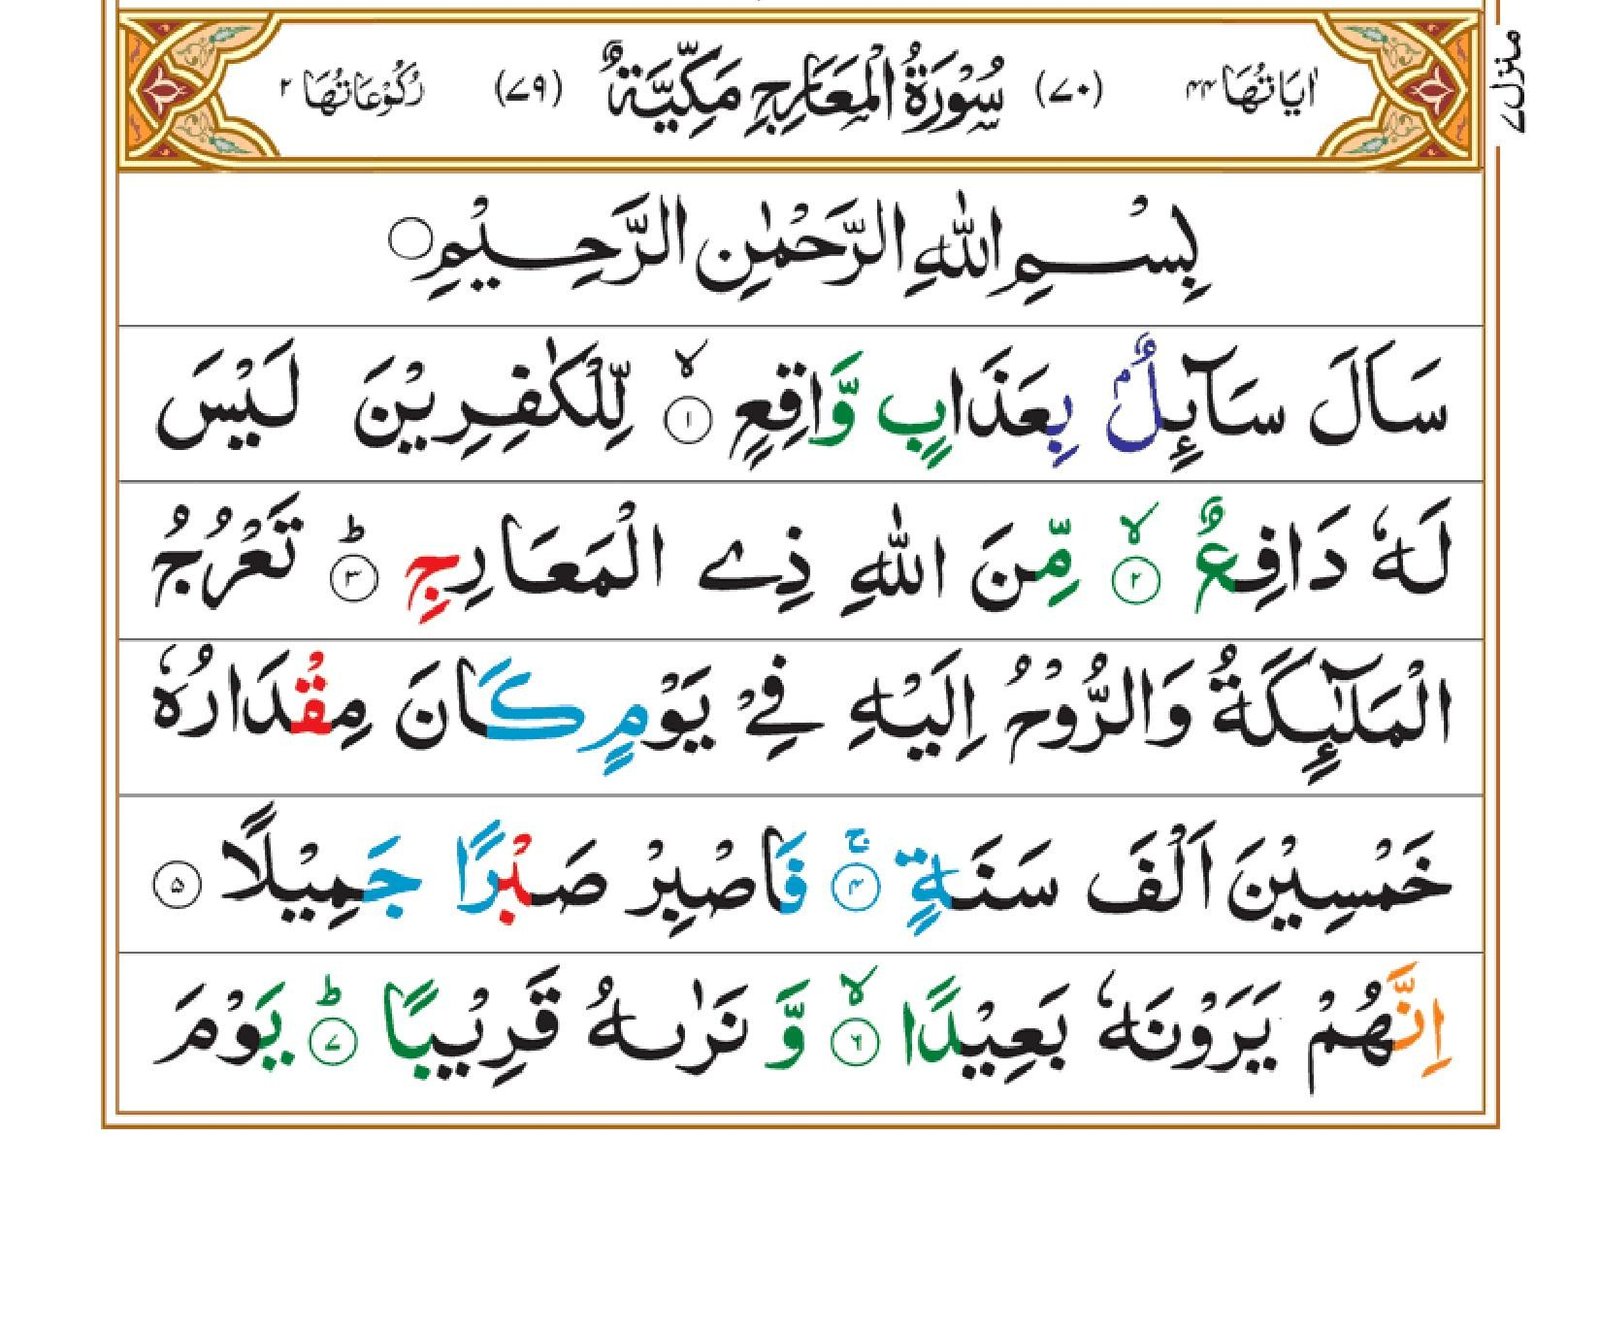 اٰيَاتُهَا ۴۴ (۷۰) سُوْرَةُ الْمَعَارِجِ مَكِّيَّةٌ (۷۹) رُكُوْعَاتُهَا ۲
منزل ۷
بِسْمِ اللّٰهِ الرَّحْمٰنِ الرَّحِيْمِ
سَاَلَ سَآئِلٌۢ بِعَذَابٍ وَّاقِعٍ ۙ﴿۱﴾ لِّلْكٰفِرِيْنَ لَيْسَ
لَهٗ دَافِعٌ ۙ﴿۲﴾ مِّنَ اللّٰهِ ذِي الْمَعَارِجِ ؕ﴿۳﴾ تَعْرُجُ
الْمَلٰٓئِكَةُ وَالرُّوْحُ اِلَيْهِ فِيْ يَوْمٍ كَانَ مِقْدَارُهٗ
خَمْسِيْنَ اَلْفَ سَنَةٍ ۚ﴿۴﴾ فَاصْبِرْ صَبْرًا جَمِيْلًا ﴿۵﴾
اِنَّهُمْ يَرَوْنَهٗ بَعِيْدًا ۙ﴿۶﴾ وَّ نَرٰىهُ قَرِيْبًا ؕ﴿۷﴾ يَوْمَ